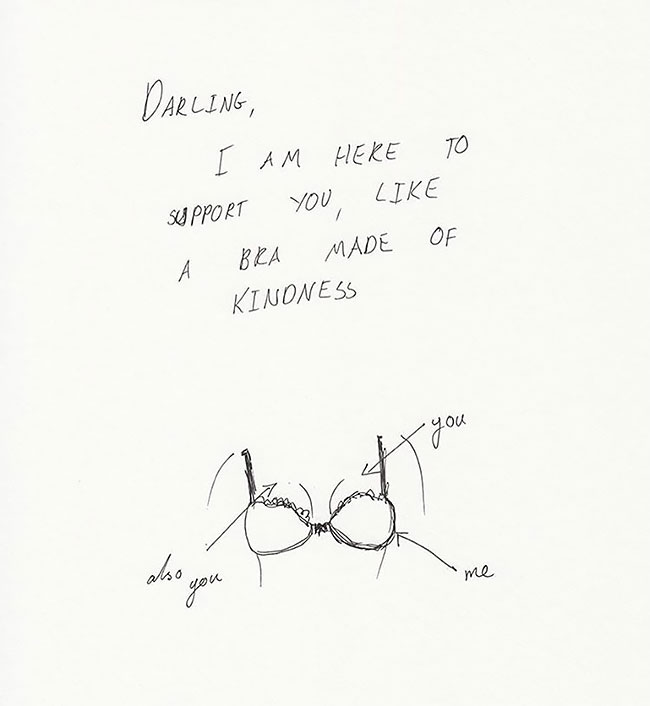 DARLING,
I AM HERE TO
SUPPORT YOU, LIKE
A BRA MADE OF
KINDNESS
you
also you
me